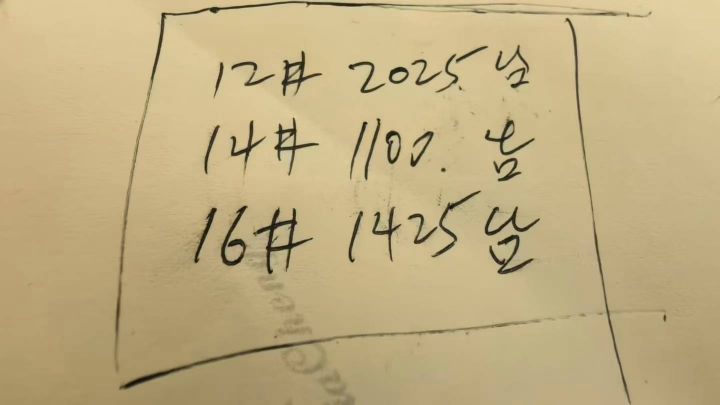 12# 2025.
14# 1100.
16# 1425